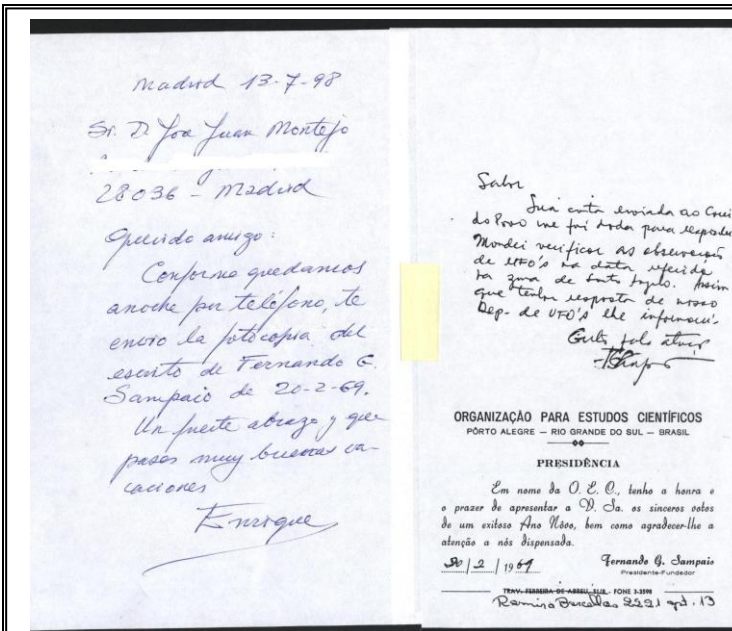 Madrid 13-7-98
Sr. D. Jose Juan Montejo
28036 - Madrid
Querido amigo:
Conforme quedamos
anoche por teléfono, te
envio la fotocopia del
escrito de Fernando G.
Sampaio de 20-2-69.
Un fuerte abrazo y que
pases muy buenas va-
caciones
Enrique
Sua carta enviada ao
do Povo me foi dada para
Mandei verificar as observações
de UFO's na data referida
na zona de Santo Assim
que tenha resposta de nosso
Dep. de UFO's lhe
ORGANIZAÇÃO PARA ESTUDOS CIENTÍFICOS
PÔRTO ALEGRE — RIO GRANDE DO SUL — BRASIL
PRESIDÊNCIA
Em nome da O. E. C., tenho a honra e
o prazer de apresentar a V. Sa. os sinceros votos
de um exitoso Ano Nôvo, bem como agradecer-lhe a
atenção a nós dispensada.
20 / 2 / 1969 Fernando G. Sampaio
Presidente-Fundador
TRAV. FERREIRA DE ABREU, FONE 3-3598
Ramiro Barcellos 2221 apt. 13